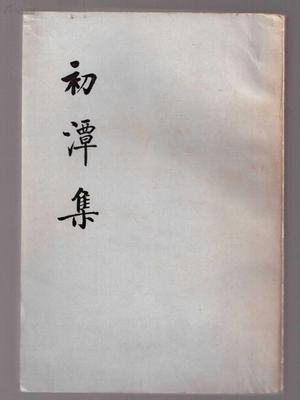 初潭集